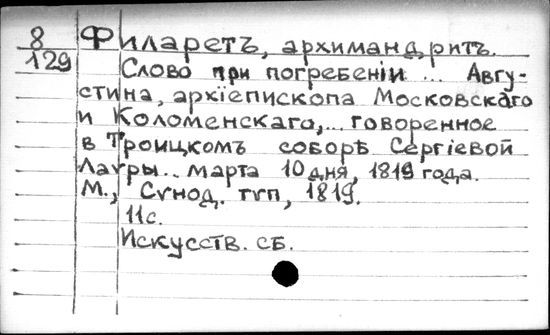 8 Филаретъ, архимандритъ.
129 Слово при погребенiи ... Авгу-
стина, архїепископа Московскаго
и Коломенскаго,... говоренное
в Троицкомъ соборѣ Сергiевой
Лавры.. марта 10 дня, 1819 года.
М., Сѵнод. тѵп, 1819.
11с.
Искусств. сб.